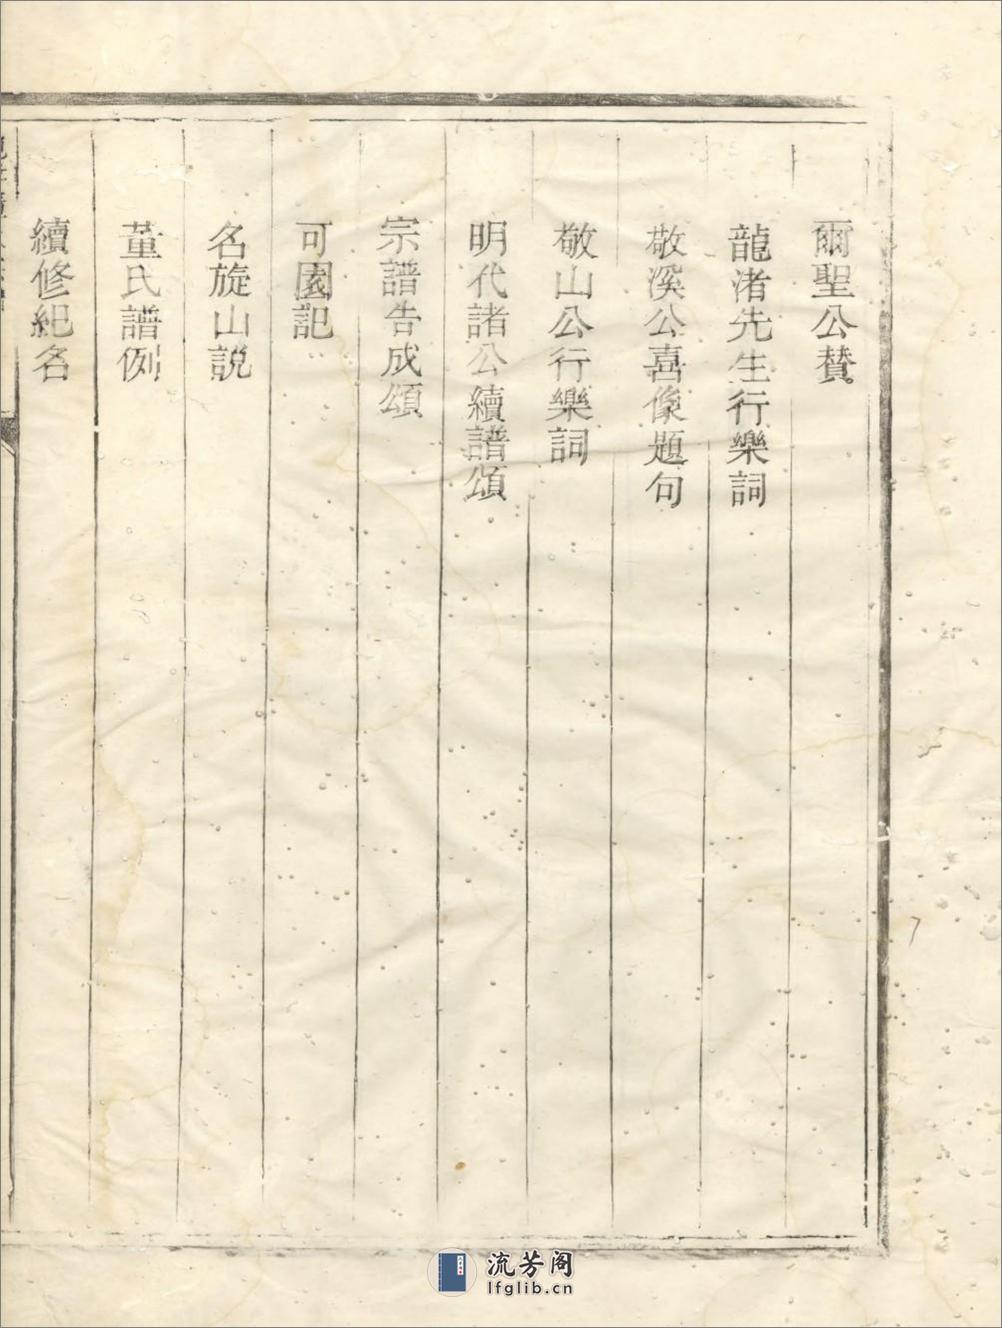 爾聖公贊
龍渚先生行樂詞
敬溪公喜像題句
敬山公行樂詞
明代諸公續譜頌
宗譜告成頌
可園記
名旋山説
董氏譜例
續修紀名
流芳阁
lfglib.cn